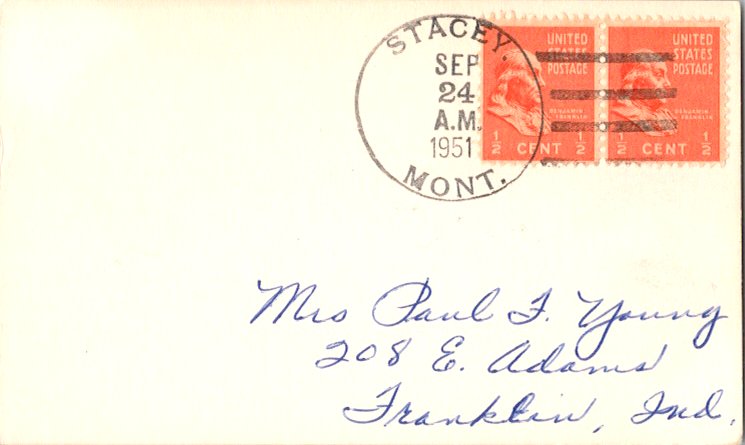 STACEY.
SEP
24
A.M.
1951
MONT.
UNITED
STATES
POSTAGE
BENJAMIN
FRANKLIN
1/2 CENT 1/2
UNITED
STATES
POSTAGE
BENJAMIN
FRANKLIN
1/2 CENT 1/2
Mrs Paul F. Young
208 E. Adams
Franklin, Ind.